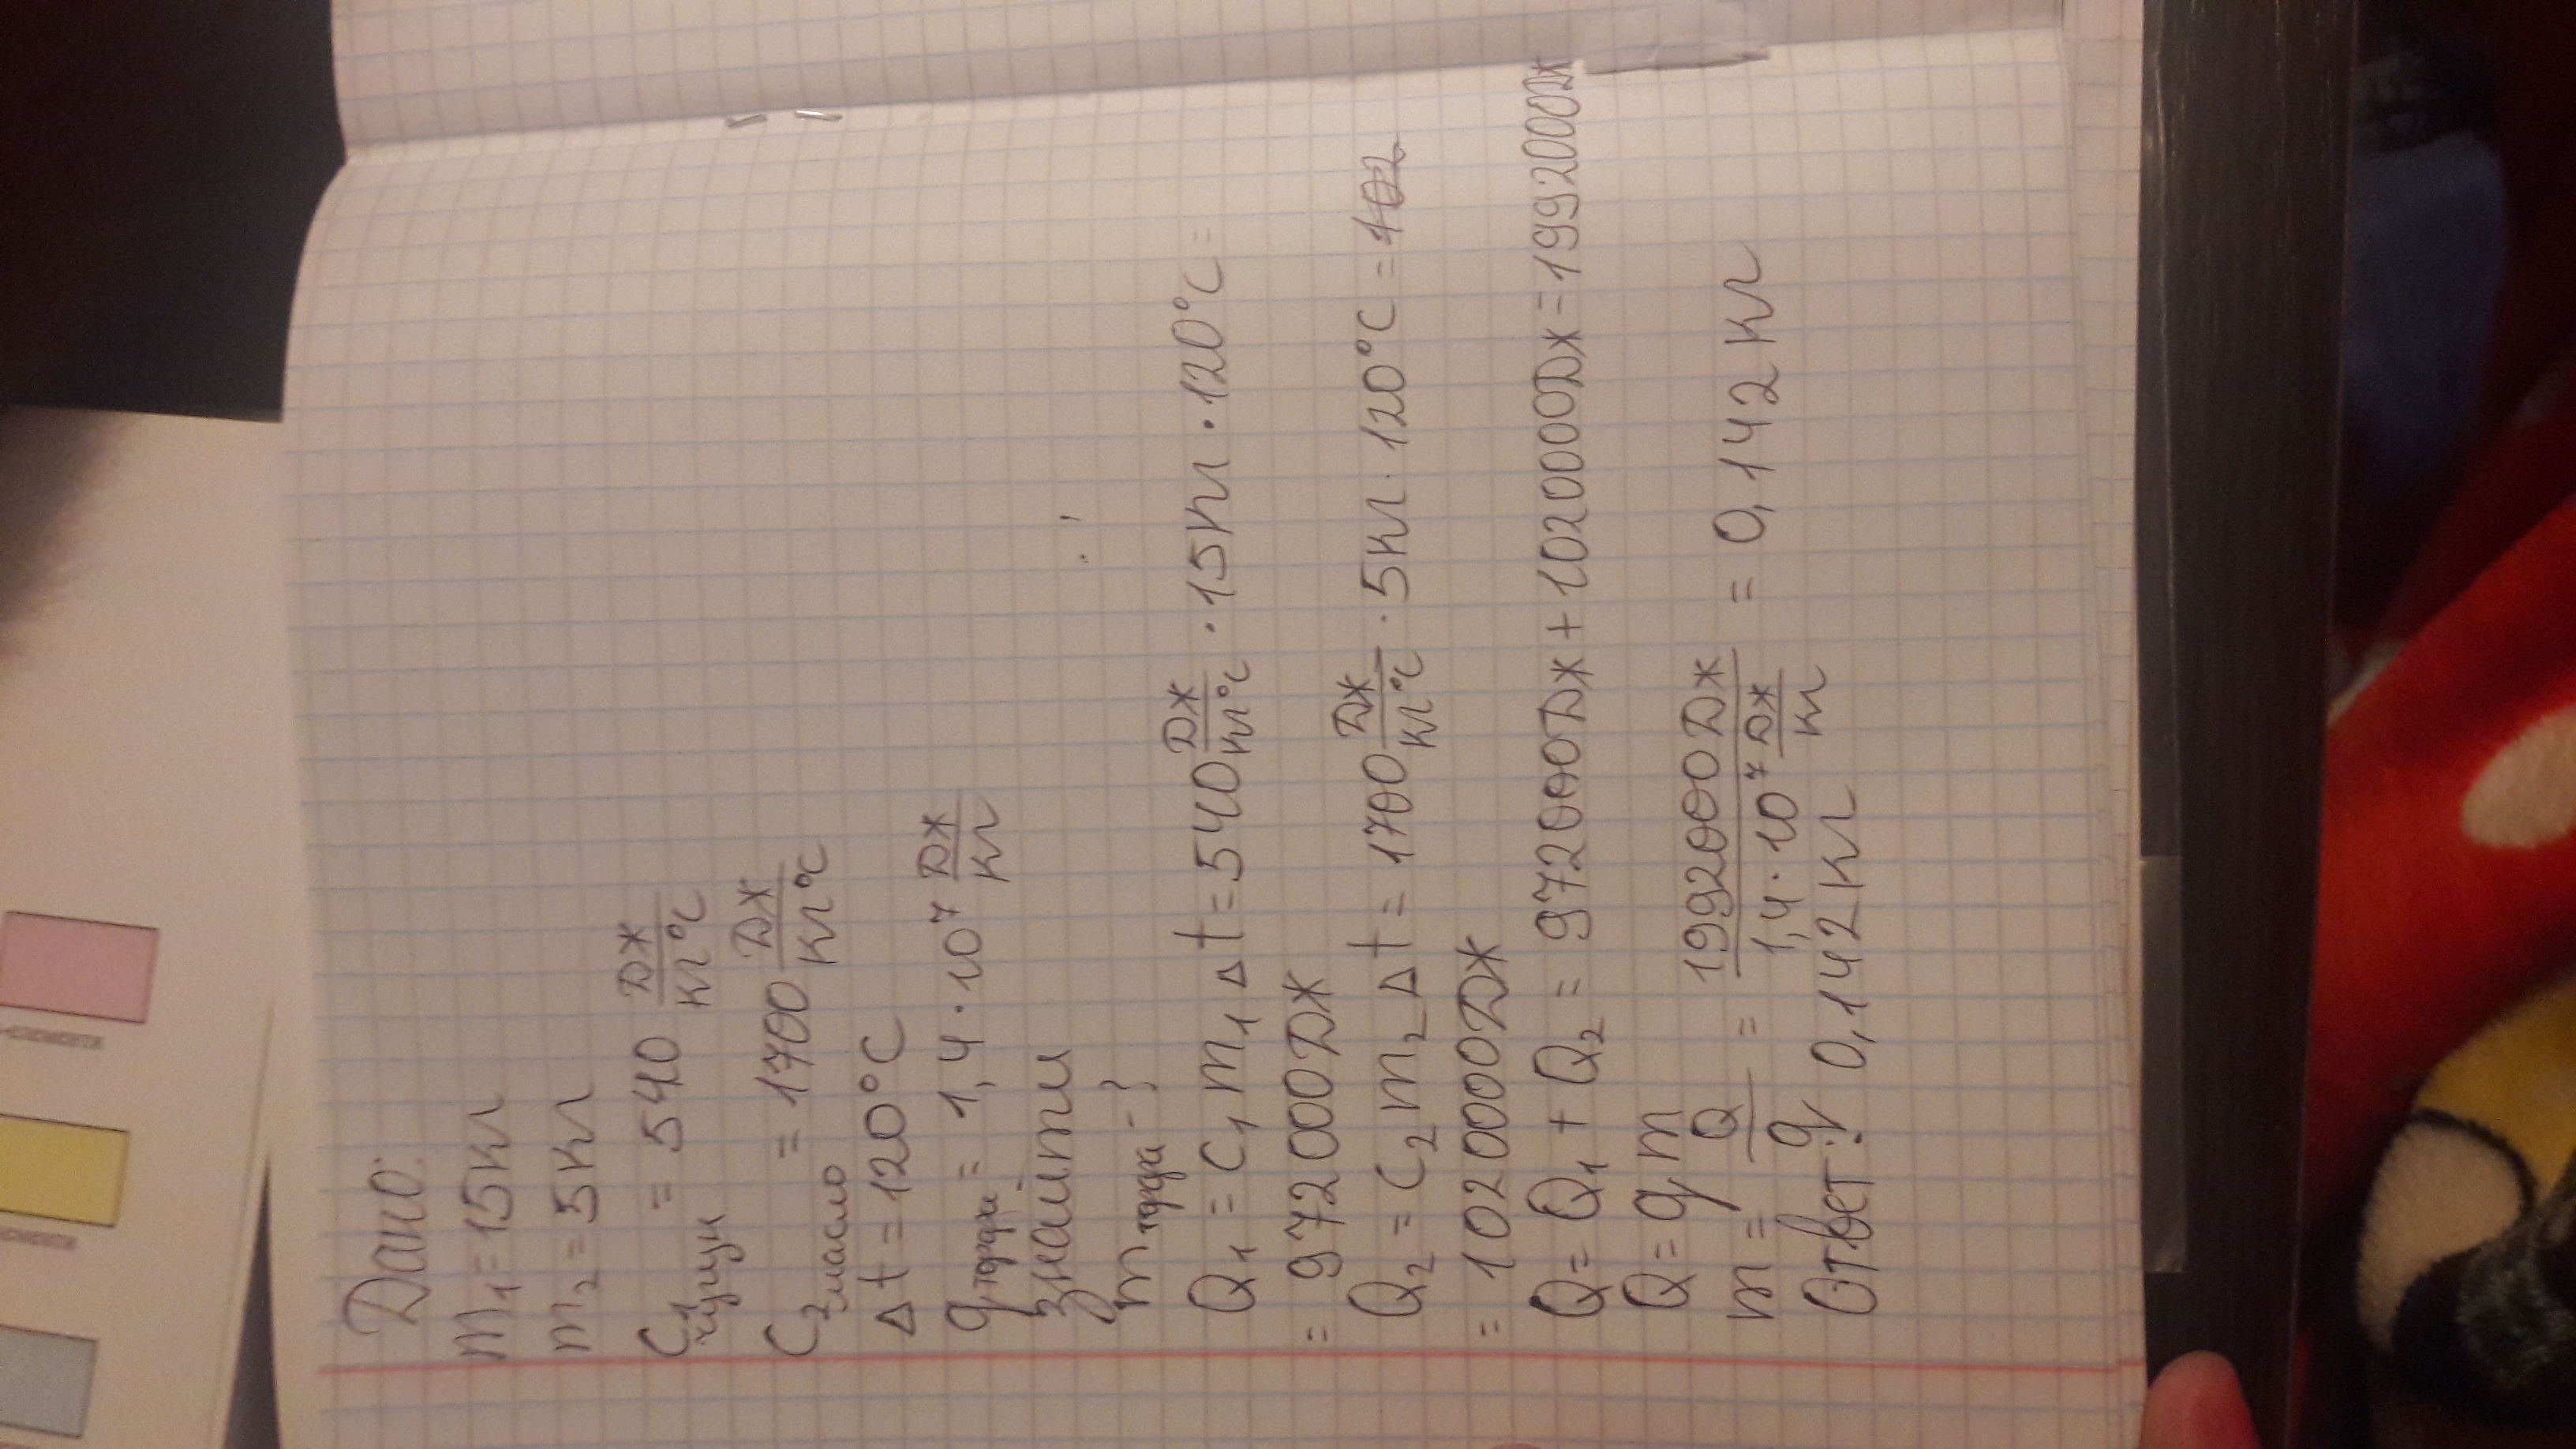 Дано:
m₁=15кг
m₂=5кг
C₁ чугун = 540 Дж/кг°С
C₂ масло = 1700 Дж/кг°С
Δt=120°С
q торфа = 1,4·10⁷ Дж/кг
знайти
m торфа -?
Q₁=C₁m₁Δt=540 Дж/кг°С ·15кг·120°С=
= 972000Дж
Q₂=C₂m₂Δt=1700 Дж/кг°С ·5кг·120°С=102
=1020000Дж
Q=Q₁+Q₂=972000Дж+1020000Дж=1992000Дж
Q=qm
m= Q/q = 1992000Дж/1,4·10⁷ Дж/кг = 0,142кг
Ответ: 0,142кг